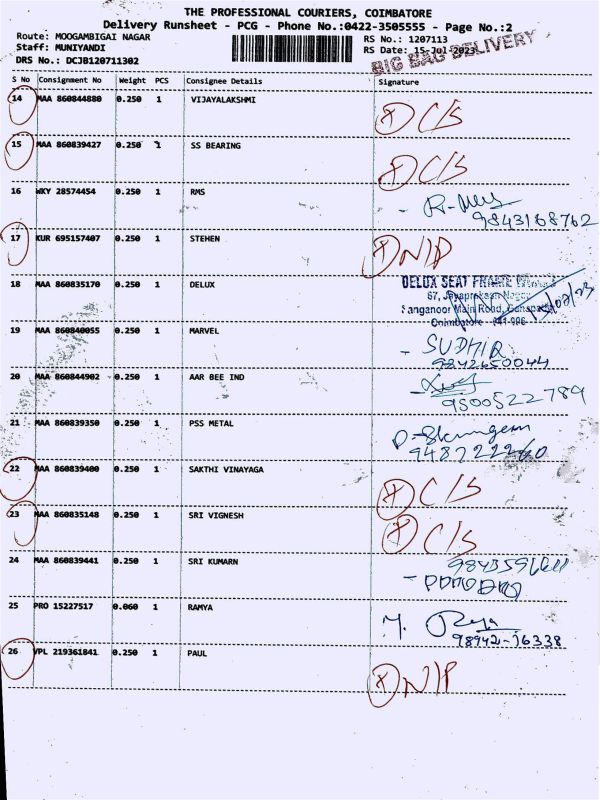 THE PROFESSIONAL COURIERS, COIMBATORE
Delivery Runsheet - PCG - Phone No.:0422-3505555 - Page No.:2
Route: MOOGAMBIGAI NAGAR RS No.: 1207113
Staff: MUNIYANDI RS Date: 15-Jul-2023
DRS No.: DCJB120711302 BIG BAG DELIVERY
S No Consignment No Weight PCS Consignee Details Signature
14 MAA 860844880 0.250 1 VIJAYALAKSHMI C/S
15 MAA 860839427 0.250 1 SS BEARING C/S
16 WKY 28574454 0.250 1 RMS
9843168762
17 KUR 695157407 0.250 1 STEHEN N/P
18 MAA 860835170 0.250 1 DELUX DELUX SEAT FRAME
67, Jayaprakash Nagar
Sanganoor Main Road, Ganapathy
Coimbatore
19 MAA 860840055 0.250 1 MARVEL - SUDHIR
9842650044
20 MAA 860844902 0.250 1 AAR BEE IND
9500522789
21 MAA 860839350 0.250 1 PSS METAL
22 MAA 860839400 0.250 1 SAKTHI VINAYAGA C/S
23 MAA 860835148 0.250 1 SRI VIGNESH C/S
24 MAA 860839441 0.250 1 SRI KUMARN
25 PRO 15227517 0.060 1 RAMYA
98942-16338
26 VPL 219361841 0.250 1 PAUL N/P